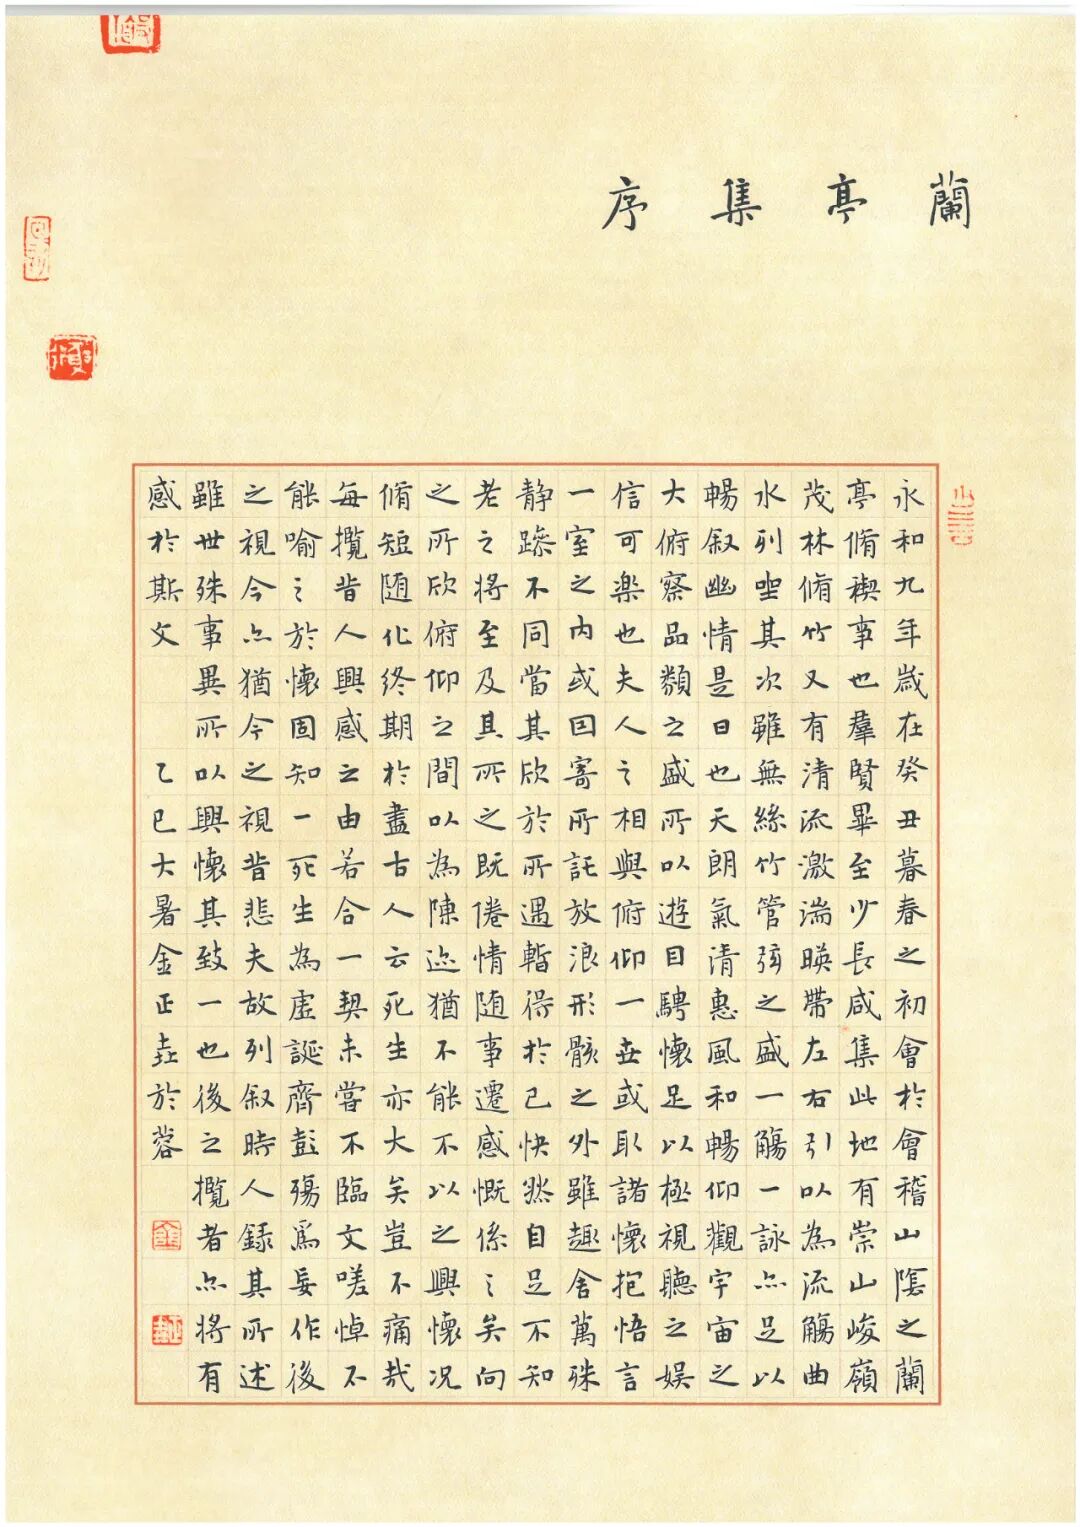 蘭亭集序
永和九年歲在癸丑暮春之初會於會稽山陰之蘭
亭脩禊事也羣賢畢至少長咸集此地有崇山峻嶺
茂林脩竹又有清流激湍暎帶左右引以為流觴曲
水列坐其次雖無絲竹管弦之盛一觴一詠亦足以
暢叙幽情是日也天朗氣清惠風和暢仰觀宇宙之
大俯察品類之盛所以遊目騁懷足以極視聽之娛
信可樂也夫人之相與俯仰一世或取諸懷抱悟言
一室之內或因寄所託放浪形骸之外雖趣舍萬殊
静躁不同當其欣於所遇暫得於己快然自足不知
老之將至及其所之既倦情随事遷感慨係之矣向
之所欣俯仰之間以為陳迹猶不能不以之興懷况
脩短随化終期於盡古人云死生亦大矣豈不痛哉
每攬昔人興感之由若合一契未嘗不臨文嗟悼不
能喻之於懷固知一死生為虛誕齊彭殤爲妄作後
之視今亦猶今之視昔悲夫故列叙時人錄其所述
雖世殊事異所以興懷其致一也後之攬者亦將有
感於斯文 乙巳大暑金正垚於蓉